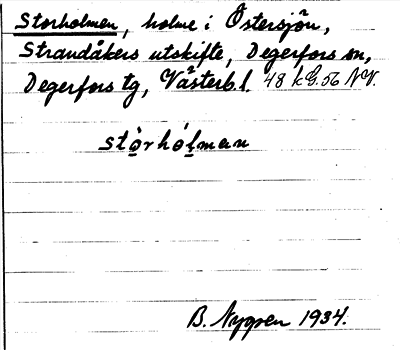 Storholmen, holme i Östersjön,
Strandåkers utskifte, Degerfors sn,
Degerfors tg, Västerb.l. 48 kG.56 NV.
stòrhólman
B. Nygren 1934.